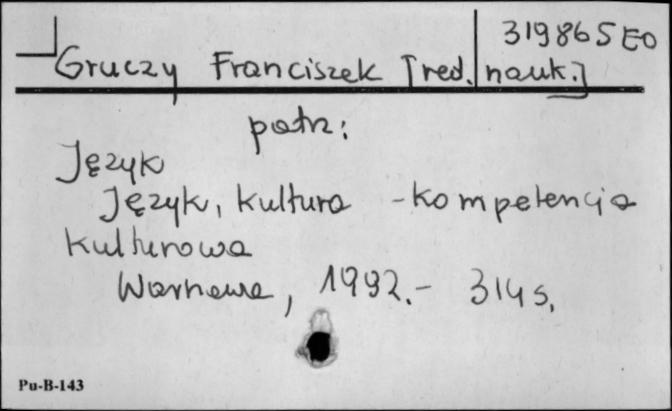 319865 EO
Gruczy Franciszek [red. nauk.]
patrz:
Język
Język, kultura - kompetencja
kulturowa
Warszawa, 1992.- 314 s.
Pu-B-143